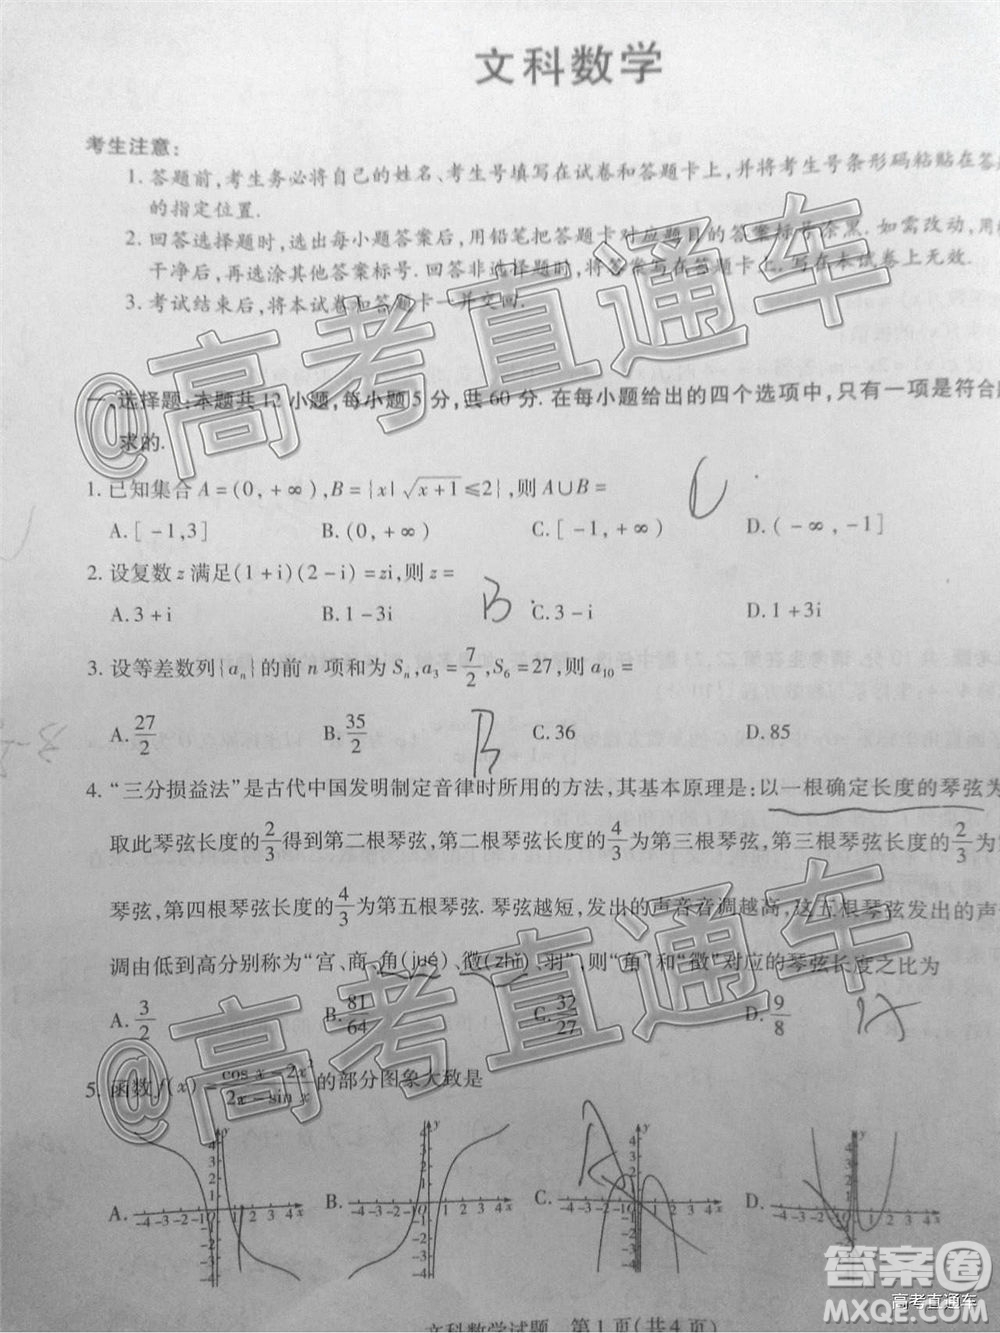 文科数学
考生注意：
1. 答题前,考生务必将自己的姓名、考生号填写在试卷和答题卡上,并将考生号条形码粘贴在答题
的指定位置.
2. 回答选择题时,选出每小题答案后,用铅笔把答题卡对应题目的答案标号涂黑.如需改动,用
干净后,再选涂其他答案标号.回答非选择题时,将答案写在答题卡上.写在本试卷上无效.
3. 考试结束后,将本试卷和答题卡一并交回.
@高考直通车
一、选择题:本题共12小题,每小题5分,共60分.在每小题给出的四个选项中,只有一项是符合
求的.
1. 已知集合 A=(0,+∞),B={x|√(x+1)≤2},则A∪B= C
A.[-1,3] B.(0,+∞) C.[-1,+∞) D.(-∞,-1]
2. 设复数z满足(1+i)(2-i)=zi,则z=
A.3+i B.1-3i B C.3-i D.1+3i
3. 设等差数列{aₙ}的前n项和为Sₙ,a₃=7/2,S₆=27,则a₁₀=
A.27/2 B.35/2 B C.36 D.85
4. “三分损益法”是古代中国发明制定音律时所用的方法,其基本原理是:以一根确定长度的琴弦为
取此琴弦长度的2/3得到第二根琴弦,第二根琴弦长度的4/3为第三根琴弦,第三根琴弦长度的2/3为
琴弦,第四根琴弦长度的4/3为第五根琴弦.琴弦越短,发出的声音音调越高,这五根琴弦发出的声
调由低到高分别称为“宫、商、角(jué)、徵(zhǐ)、羽”,则“角”和“徵”对应的琴弦长度之比为
A.3/2 B.81/64 C.32/27 D.9/8
@高考直通车
5. 函数f(x)=(cos x-2x²)/(2x-sin x)的部分图象大致是
A. B. C. D.
-4 -3 -2 -1 O 1 2 3 4 x y
-4 -3 -2 -1 O 1 2 3 4 x y
-4 -3 -2 -1 O 1 2 3 4 x y
-4 -3 -2 -1 O 1 2 3 4 x y
文科数学试题 第1页(共4页)
答案圈
MXQE.COM
高考直通车